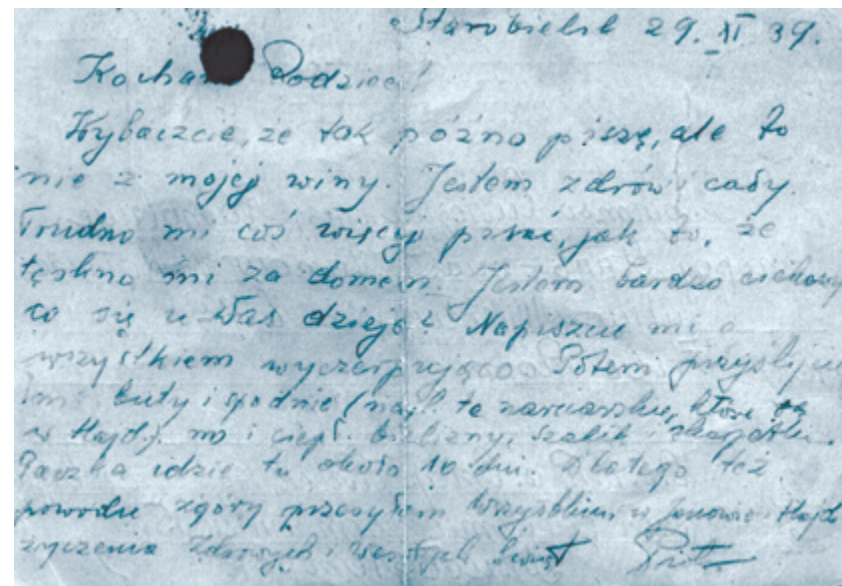 Starobielsk 29. XI 39.
Kochani Rodzice!
Wybaczcie, że tak późno piszę, ale to
nie z mojej winy. Jestem zdrów i cały.
Trudno mi coś więcej pisać, jak to, że
tęskno mi za domem. Jestem bardzo ciekawy
co się u Was dzieje? Napiszcie mi o
wszystkiem wyczerpująco. Potem przyślijcie
buty i spodnie (najl. te narciarskie, które są
w Hajd.), no i ciepł. bielizny, szalik i skarpetki.
Paczka idzie tu około 10 dni. Dlatego też
powodu zgóry przesyłam Wszystkim, w Janowie i Hajd.
życzenia Zdrowych i Wesołych Świąt Piotr